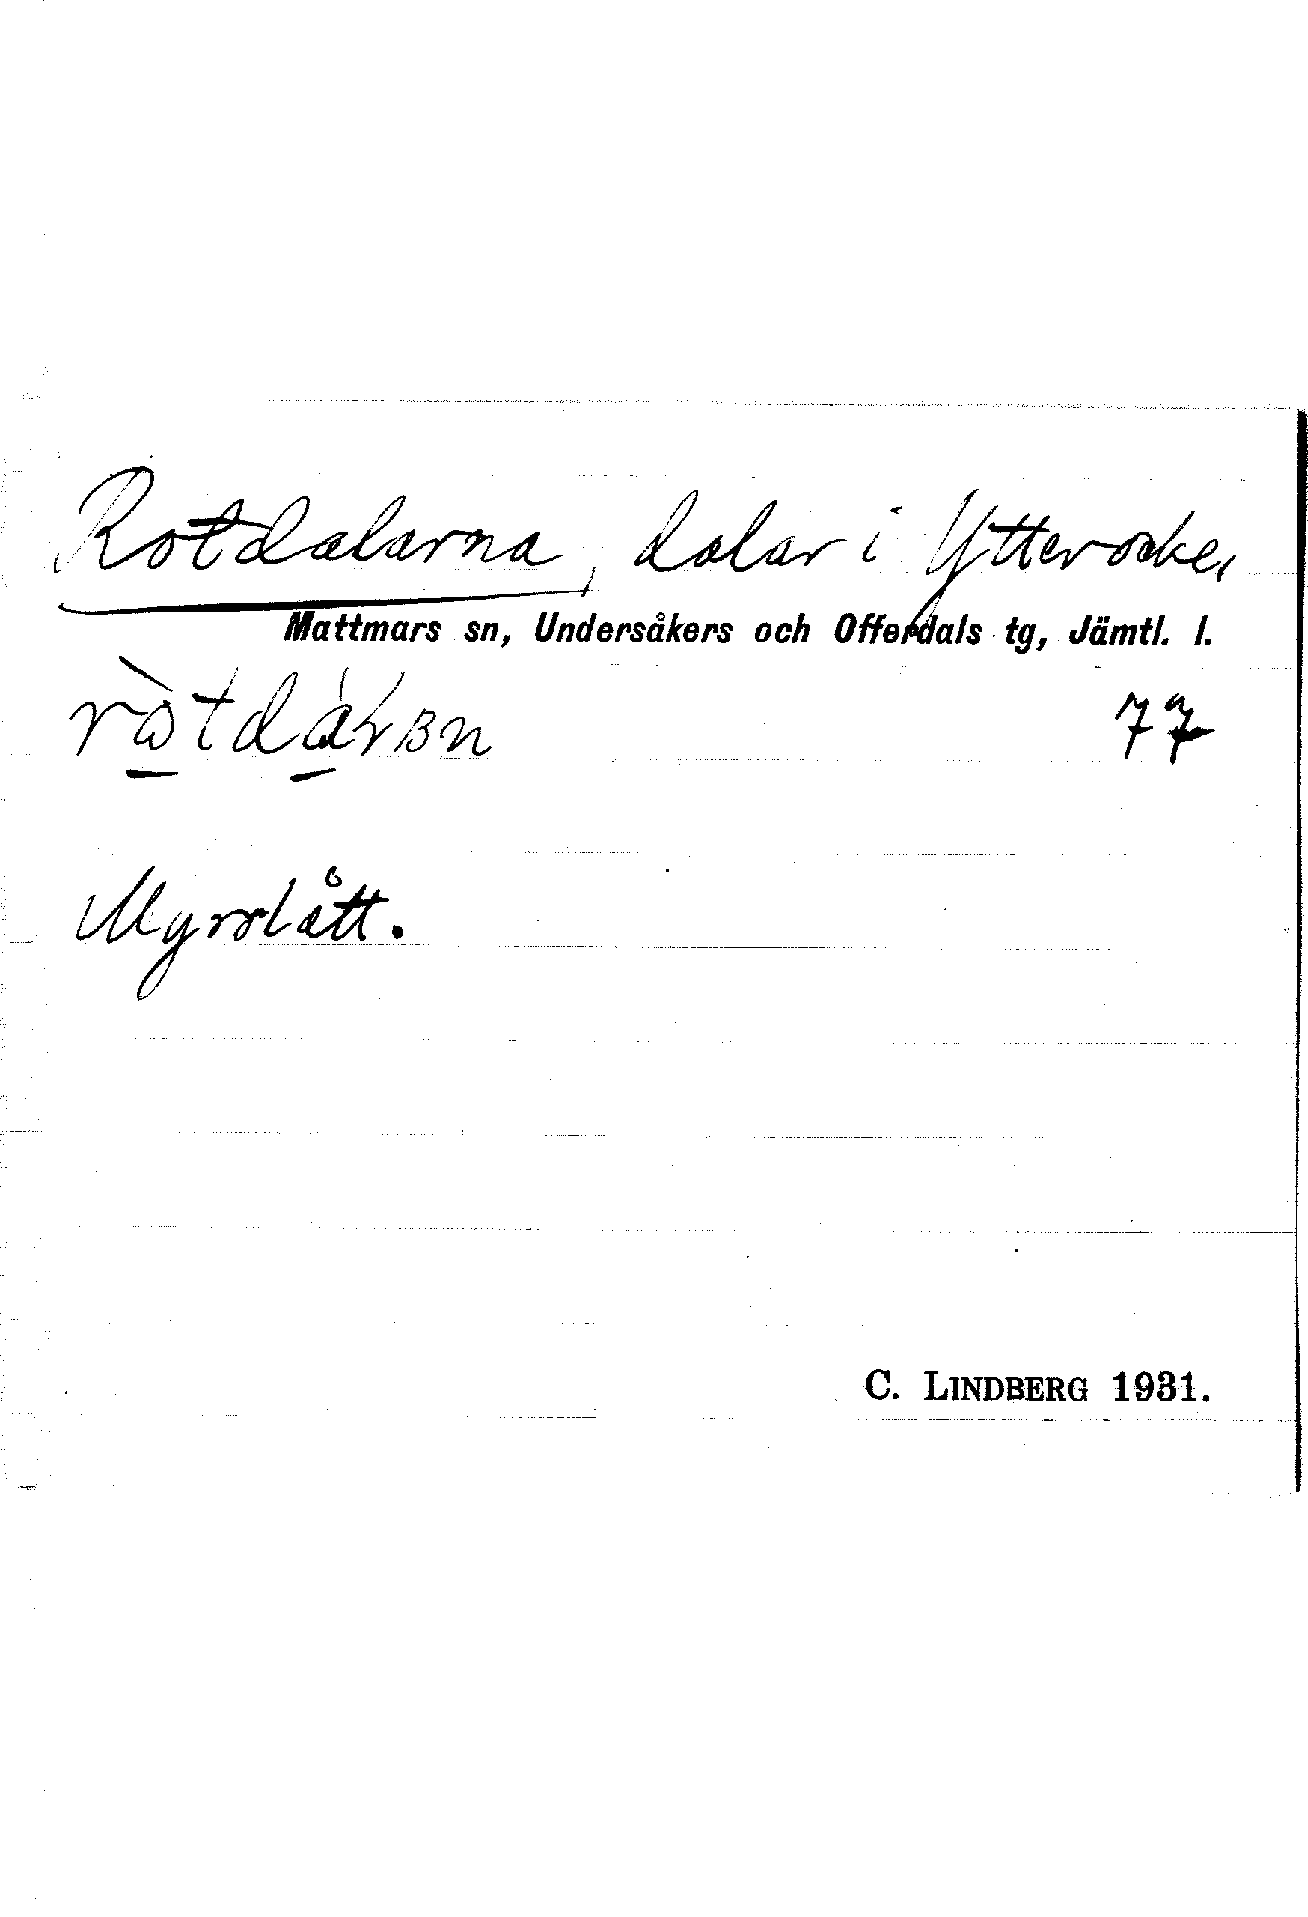 Rotdalarna, dalar i Ytterocke,
Mattmars sn, Undersåkers och Offerdals tg, Jämtl. l.
77
Myrslått.
C. LINDBERG 1931.